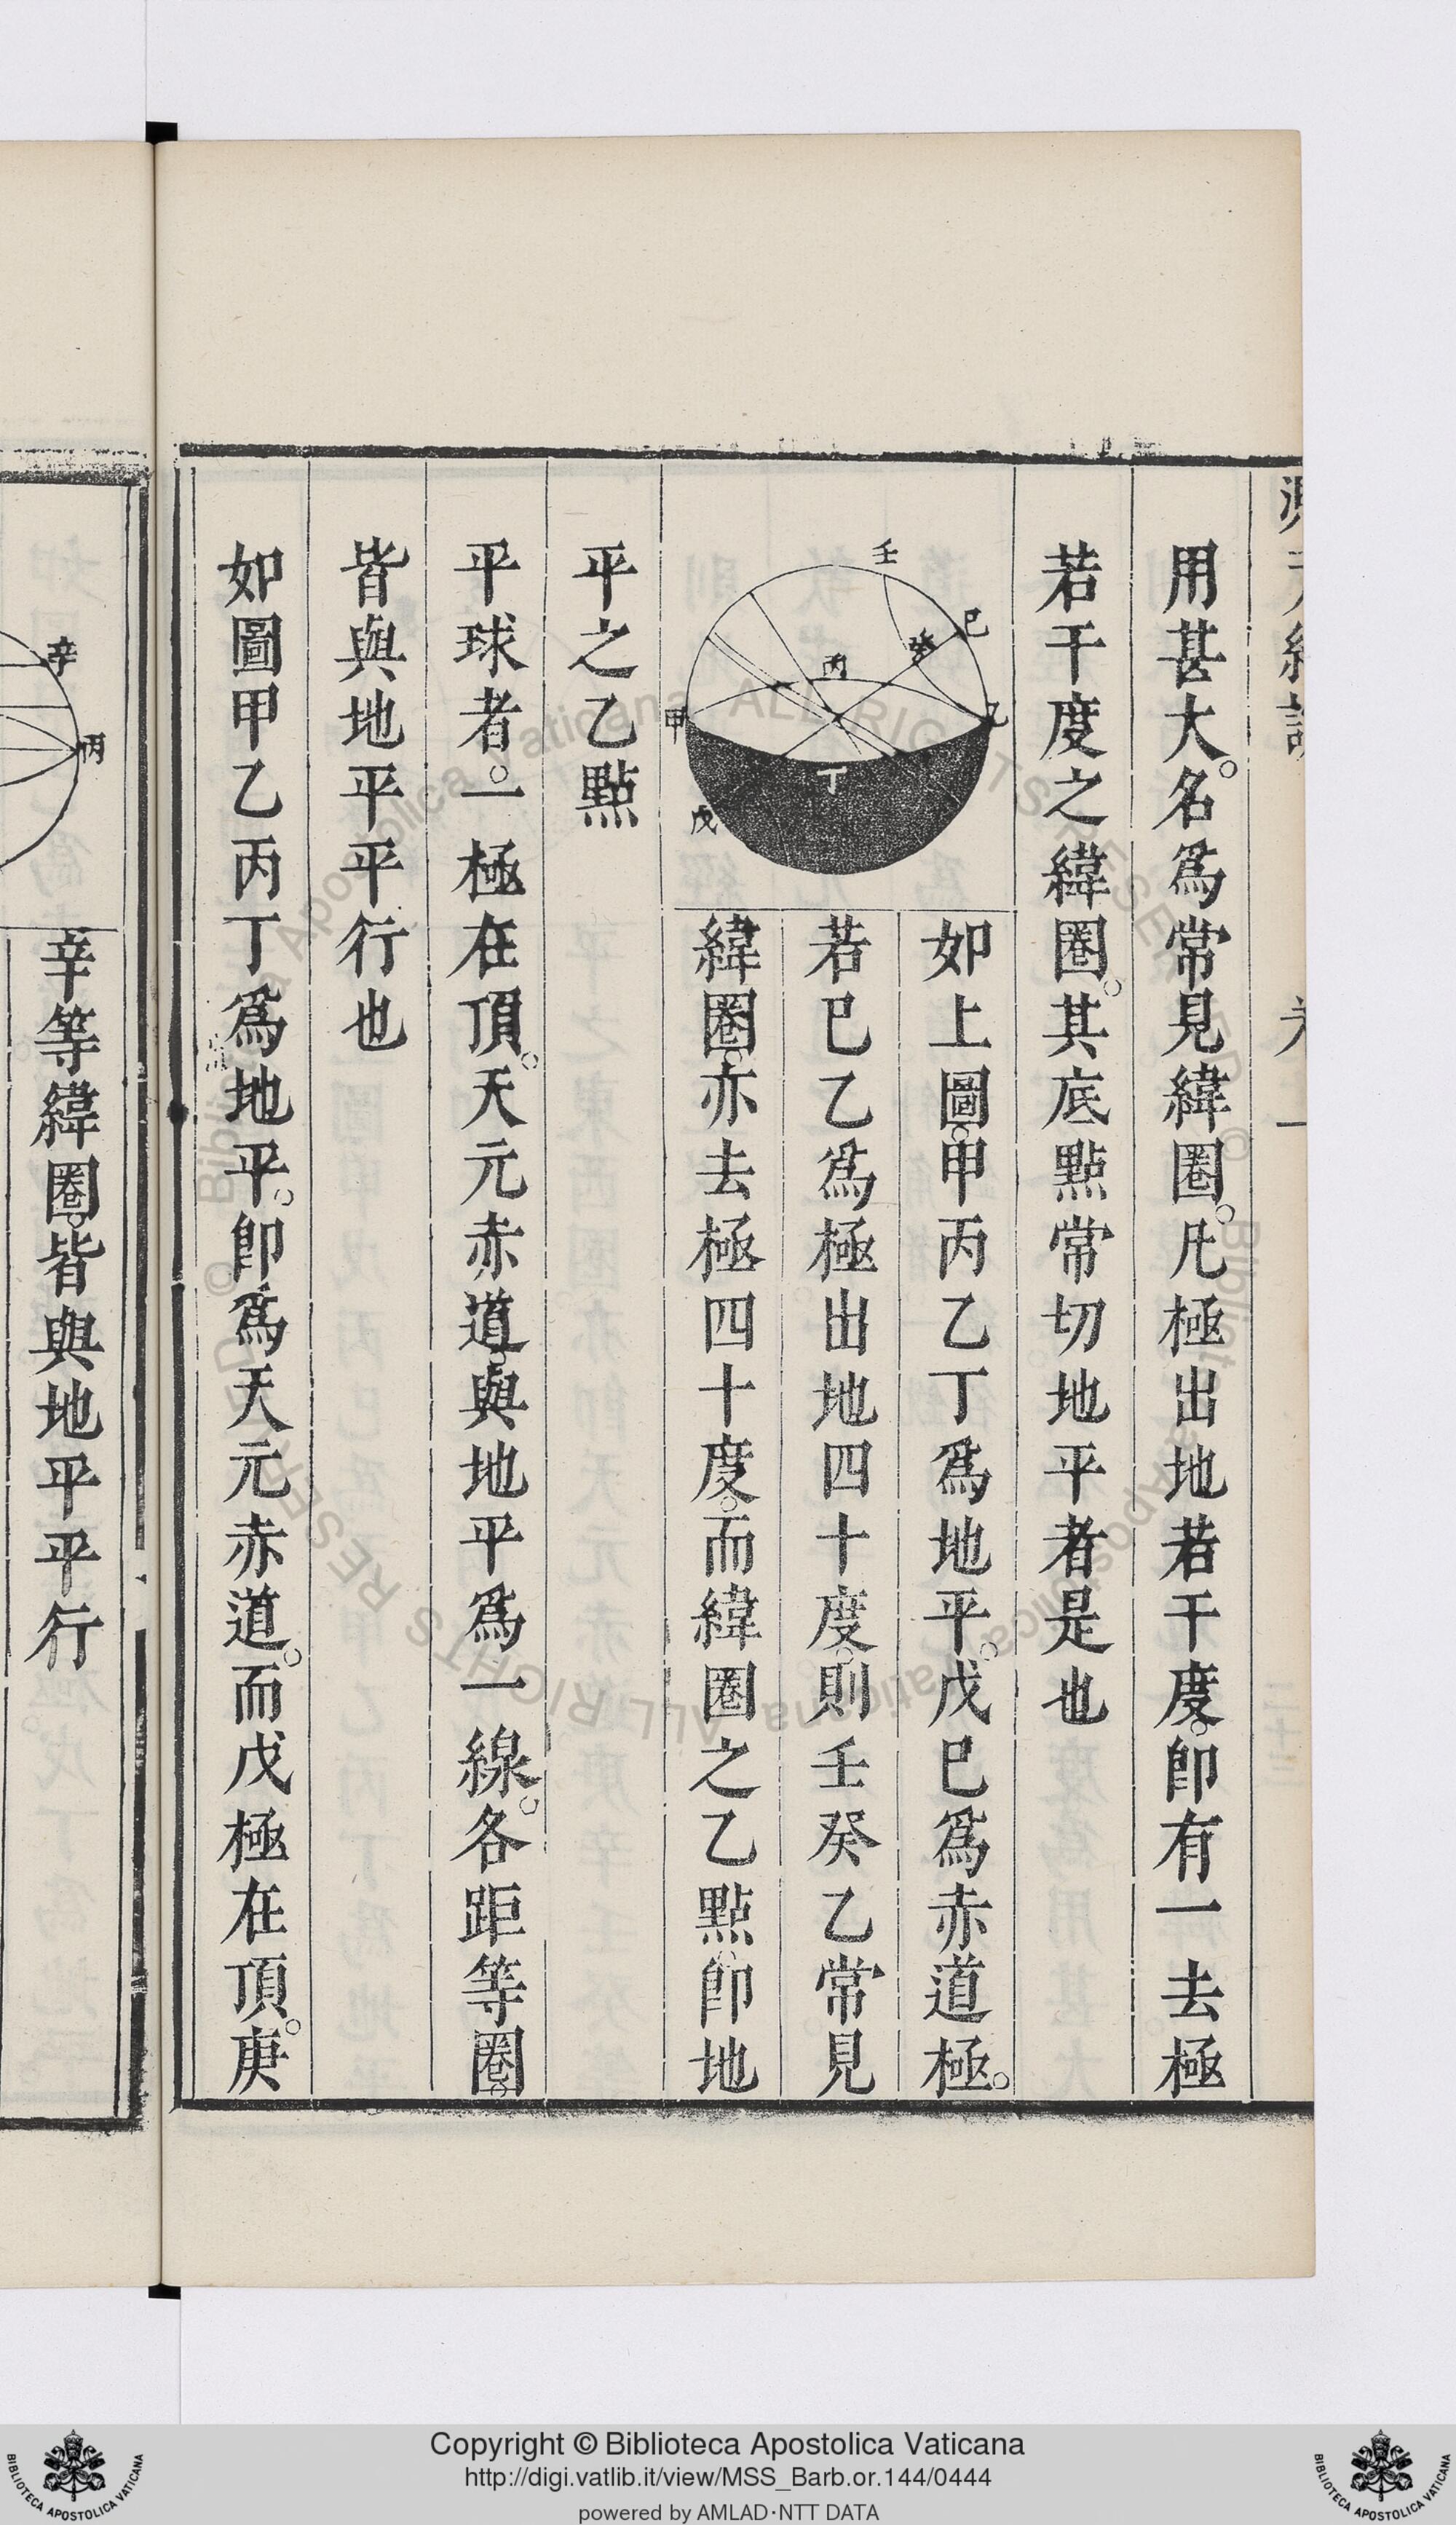 用甚大。名爲常見緯圈。凡極出地若干度。卽有一去極
若干度之緯圈。其底點常切地平者是也
壬
巳
癸
丙
乙
甲
丁
戊
如上圖。甲丙乙丁爲地平。戊巳爲赤道極。
若巳乙爲極出地四十度。則壬癸乙常見
緯圈。亦去極四十度。而緯圈之乙點。卽地
平之乙點
平球者。一極在頂。天元赤道。與地平爲一線。各距等圈。
皆與地平平行也
如圖甲乙丙丁爲地平。卽爲天元赤道。而戊極在頂。庚
辛
丙
辛等緯圈。皆與地平平行
Copyright © Biblioteca Apostolica Vaticana
http://digi.vatlib.it/view/MSS_Barb.or.144/0444
powered by AMLAD·NTT DATA
BIBLIOTECA APOSTOLICA VATICANA
BIBLIOTECA APOSTOLICA VATICANA